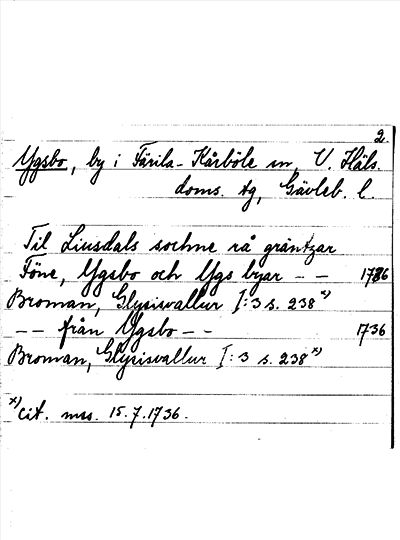 2.
Ygsbo, by i Färila-Kårböle sn, V. Häls.
doms. tg, Gävleb. l.
Til Liusdals sochne rå gräntzar
Föne, Ygsbo och Ygs byar - - 1736
Broman, Glysisvallur I:3 s. 238 x)
-- från Yggsbo -- 1736
Broman, Glysisvallur I:3 s. 238 x)
x) cit. mss. 15.7.1736.